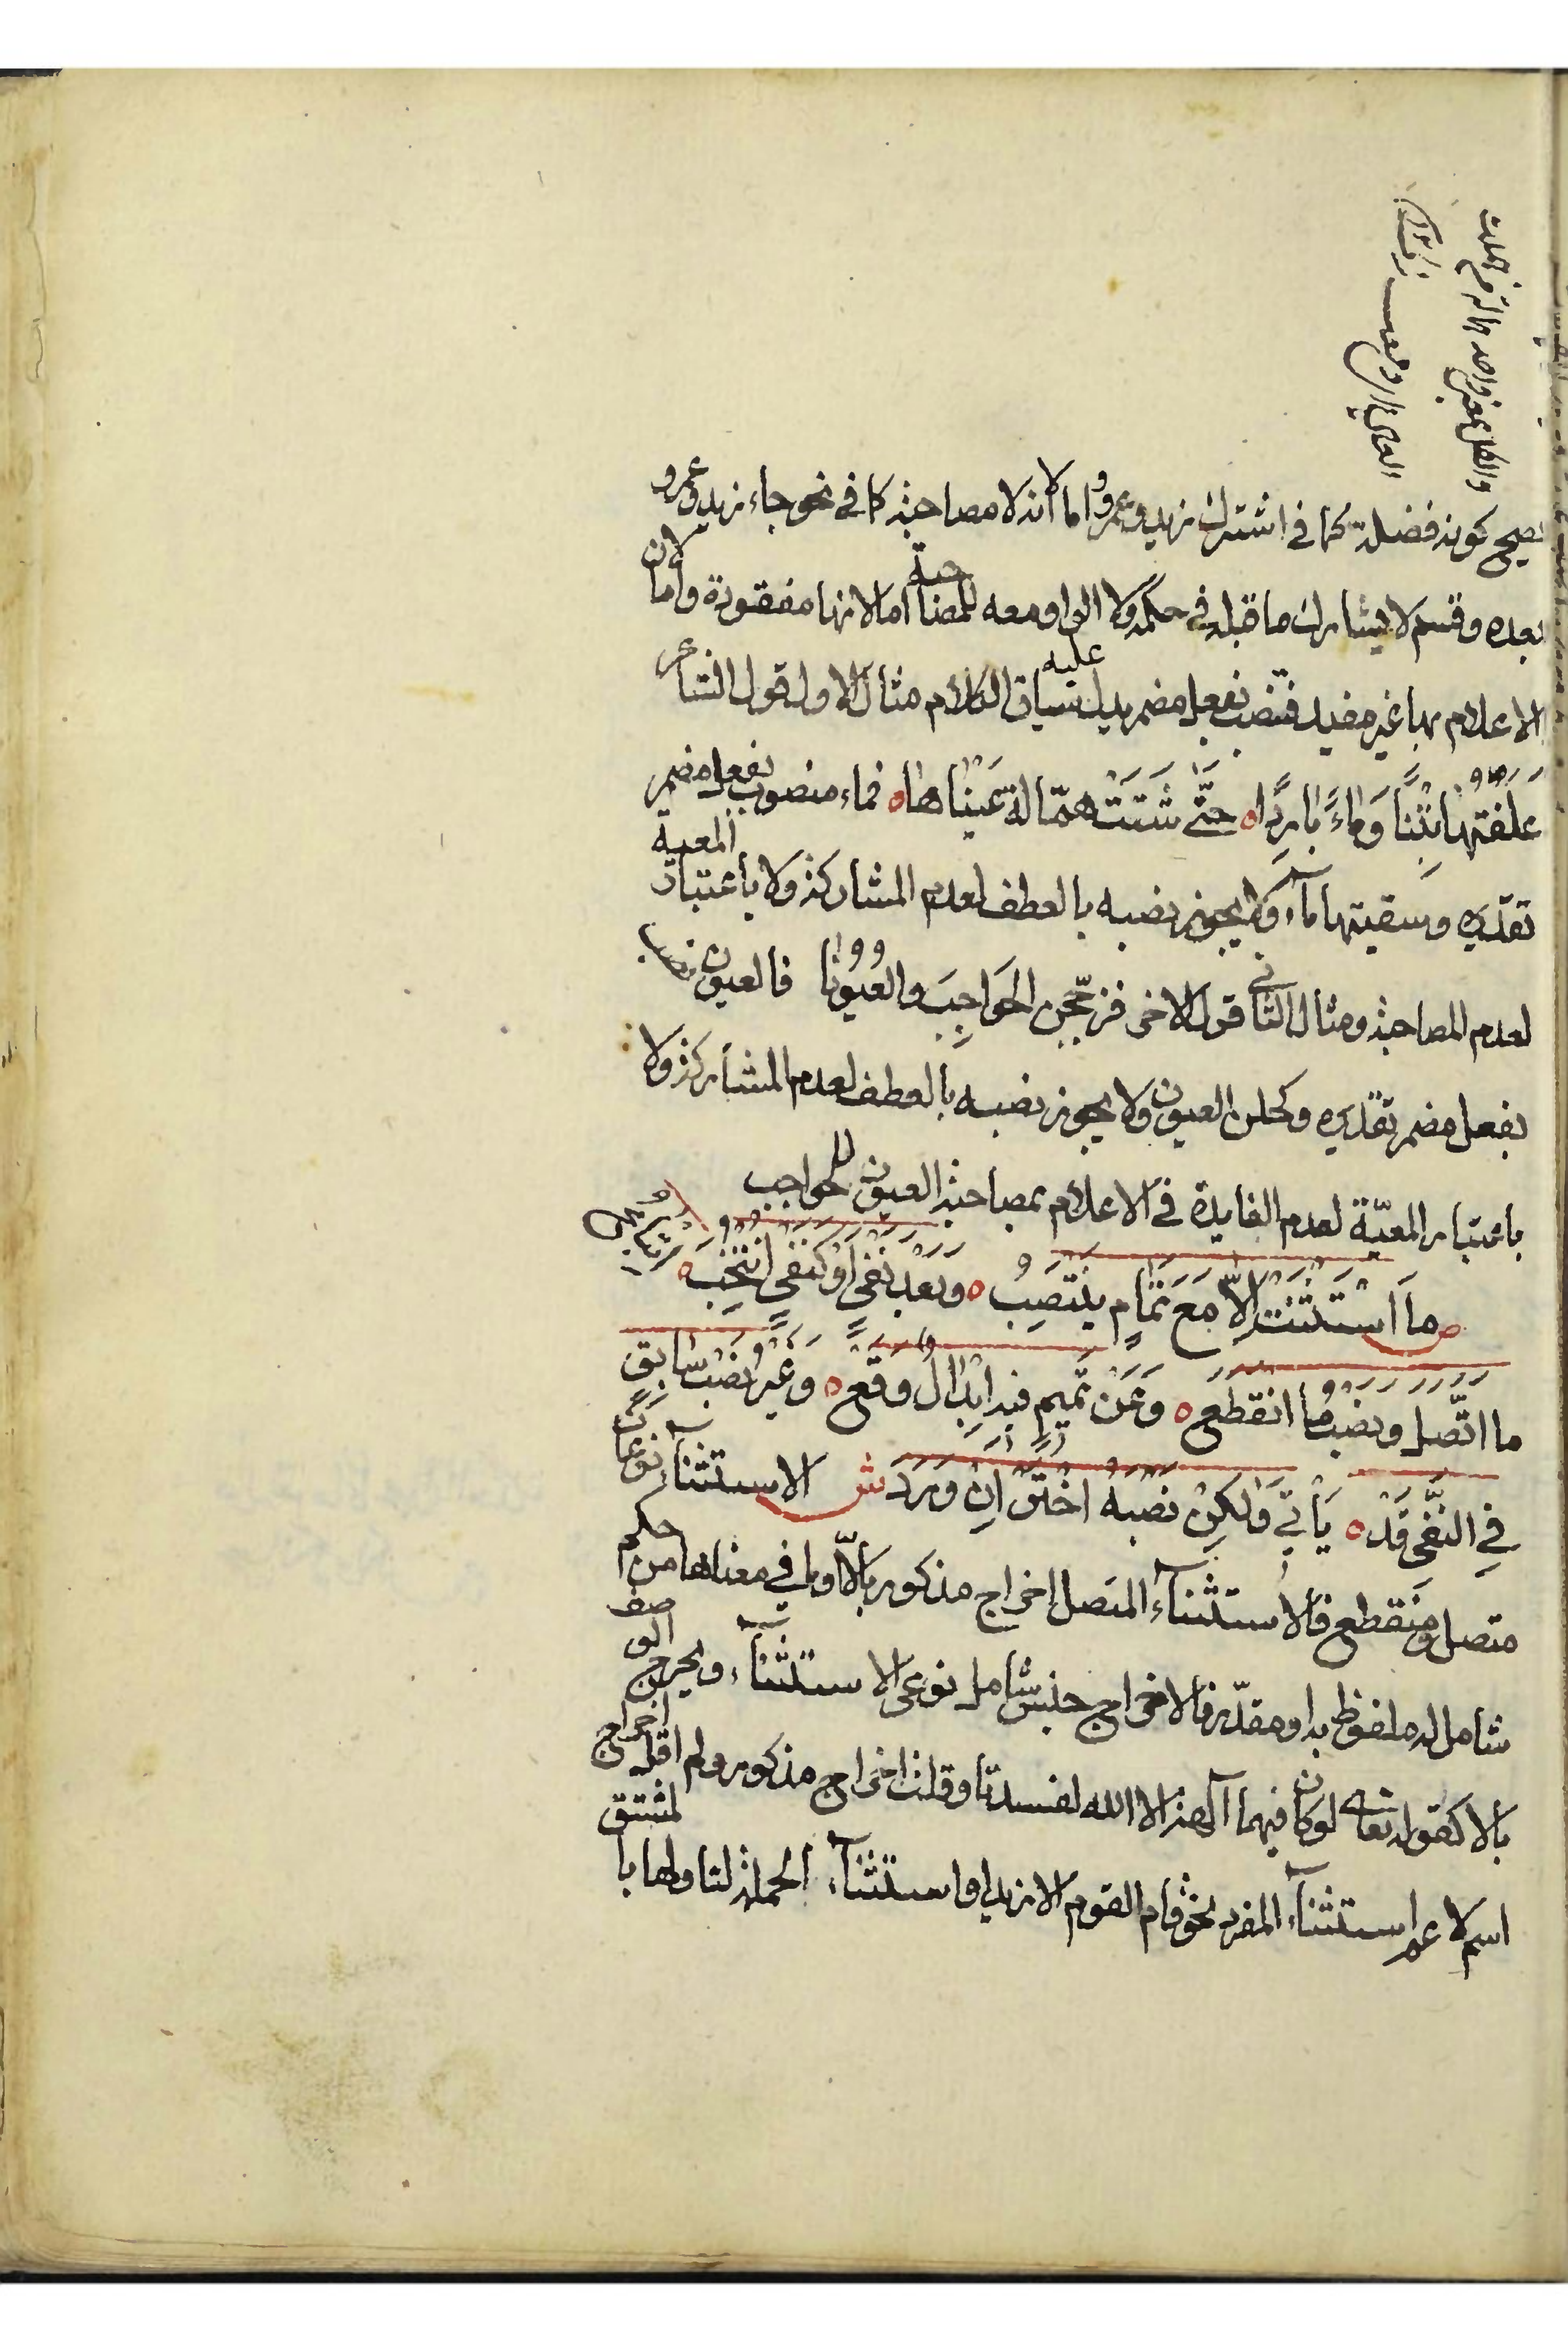 يصح كونه فضلة كما في اشترك زيد وعمرو واما لانه لا مصاحبة كما في نحو جاء زيد وعمرو
بعده وقسم لا يشارك ما قبله في حكمه ولا الواو معه للمصاحبة اما لانها مفقودة واما لان
الاعلام بها غير مفيد فينصب بفعل مضمر يدل عليه سياق الكلام مثال الاول قول الشاعر
عَلَفْتُهَا تِبْنًا وَمَاءً بَارِدًا ه حَتَّى شَتَتْ هَمَّالَةً عَيْنَاهَا ه فماء منصوب بفعل مضمر
تقديره وسقيتها ماء ولا يجوز نصبه بالعطف لعدم المشاركة ولا باعتبار المعية
لعدم المصاحبة ومثال الثاني قول الاخر فزججن الحَوَاجِبَ والعُيُونَا فالعيون نصب
بفعل مضمر تقديره وكحلن العيون ولا يجوز نصبه بالعطف لعدم المشاركة ولا
باعتبار المعيّة لعدم الفايدة في الاعلام بمصاحبة العيون للحواجب
ص مَا اسْتَثْنَتِ الَّا مَعَ تَمَامٍ يَنْتَصِبْ ه وَبَعْدَ نَفْيٍ أَوْ كَنَفْيٍ انْتُخِبْ ه
ما اتَّصل ونصب ما انْقَطَعْ ه وَعَنْ تَمِيمٍ فيه ابْدَالٌ وَقَعْ ه وَغَيْرُ نَصْبِ سَابِقٍ
فِي النَّفْيِ قَدْ ه يَأْتِي وَلَكِنْ نَصْبَهُ اخْتَرْ اِنْ وَرَدْ ش الاستثناء نوعان
متصل ومنقطع فالاستثناء المتصل إخراج مذكور بالّا وما في معناها من حكم
شامل له ملفوظ به او مقدّر فالاخراج جنس شامل نوعي الاستثناء ويخرج الوصف
بالا كقوله تعالى لوكان فيهما آلهة الا الله لفسدتا وقلت اخراج مذكور ولم اقل اخراج
اسم لا عم استثناء المفرد نحو قام القوم الا زيدا واستثناء الجملة لتاولها بالمشتق